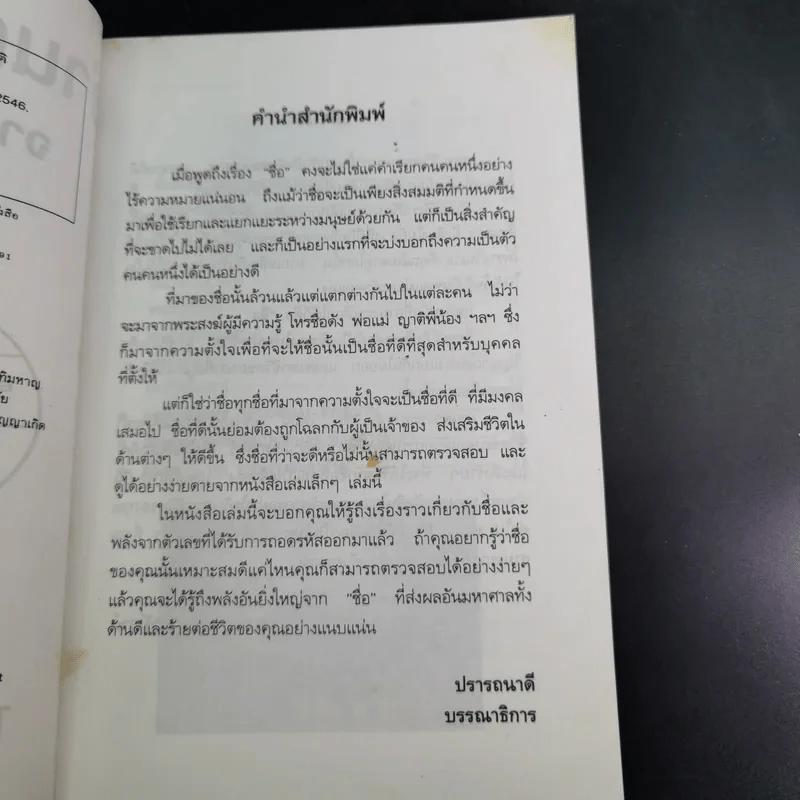 2546.
คำนำสำนักพิมพ์
เมื่อพูดถึงเรื่อง "ชื่อ" คงจะไม่ใช่แค่คำเรียกคนคนหนึ่งอย่าง
ไร้ความหมายแน่นอน ถึงแม้ว่าชื่อจะเป็นเพียงสิ่งสมมติที่กำหนดขึ้น
มาเพื่อใช้เรียกและแยกแยะระหว่างมนุษย์ด้วยกัน แต่ก็เป็นสิ่งสำคัญ
ที่จะขาดไปไม่ได้เลย และก็เป็นอย่างแรกที่จะบ่งบอกถึงความเป็นตัว
คนคนหนึ่งได้เป็นอย่างดี
ที่มาของชื่อนั้นล้วนแล้วแต่แตกต่างกันไปในแต่ละคน ไม่ว่า
จะมาจากพระสงฆ์ผู้มีความรู้ โหรชื่อดัง พ่อแม่ ญาติพี่น้อง ฯลฯ ซึ่ง
ก็มาจากความตั้งใจเพื่อที่จะให้ชื่อนั้นเป็นชื่อที่ดีที่สุดสำหรับบุคคล
ที่ตั้งให้
แต่ก็ใช่ว่าชื่อทุกชื่อที่มาจากความตั้งใจจะเป็นชื่อที่ดี ที่มีมงคล
เสมอไป ชื่อที่ดีนั้นย่อมต้องถูกโฉลกกับผู้เป็นเจ้าของ ส่งเสริมชีวิตใน
ด้านต่างๆ ให้ดีขึ้น ซึ่งชื่อที่ว่าจะดีหรือไม่นั้นสามารถตรวจสอบ และ
ดูได้อย่างง่ายดายจากหนังสือเล่มเล็กๆ เล่มนี้
ในหนังสือเล่มนี้จะบอกคุณให้รู้ถึงเรื่องราวเกี่ยวกับชื่อและ
พลังจากตัวเลขที่ได้รับการถอดรหัสออกมาแล้ว ถ้าคุณอยากรู้ว่าชื่อ
ของคุณนั้นเหมาะสมดีแค่ไหนคุณก็สามารถตรวจสอบได้อย่างง่ายๆ
แล้วคุณจะได้รู้ถึงพลังอันยิ่งใหญ่จาก "ชื่อ" ที่ส่งผลอันมหาศาลทั้ง
ด้านดีและร้ายต่อชีวิตของคุณอย่างแนบแน่น
ปรารถนาดี
บรรณาธิการ